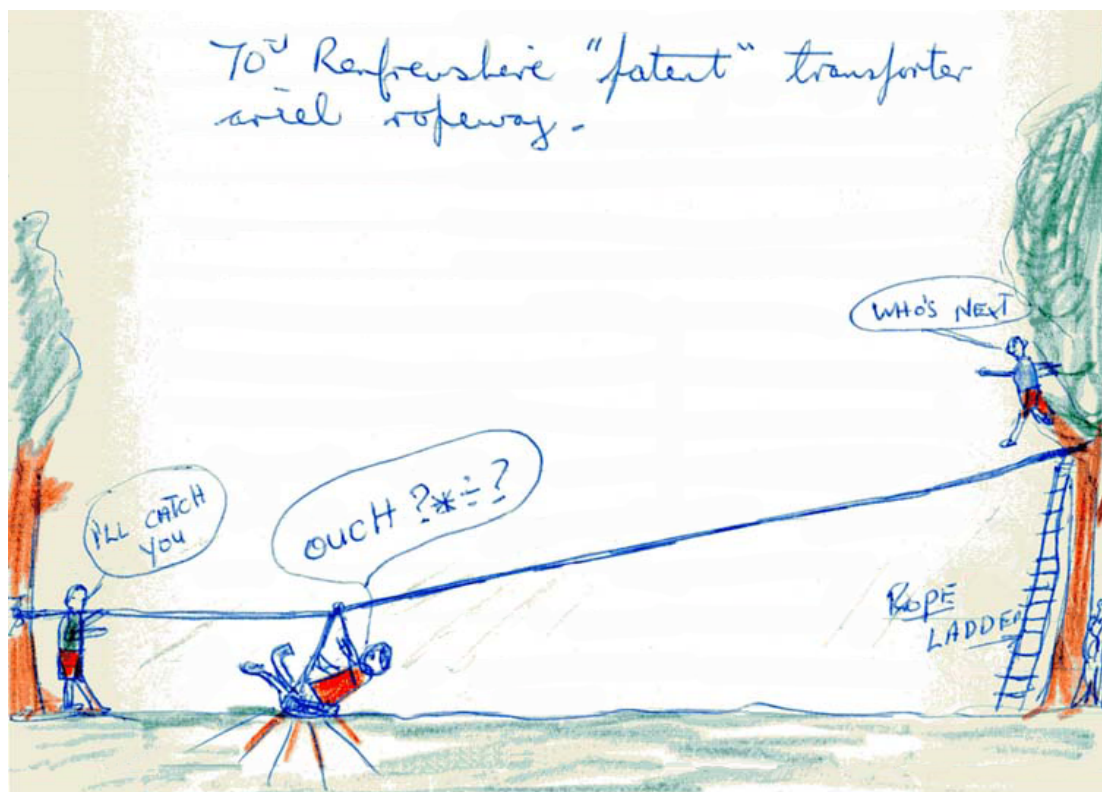 70th Renfrewshire "patent" transporter
ariel ropeway.
WHO'S NEXT
OUCH ?*÷?
I'LL CATCH
YOU
ROPE
LADDER